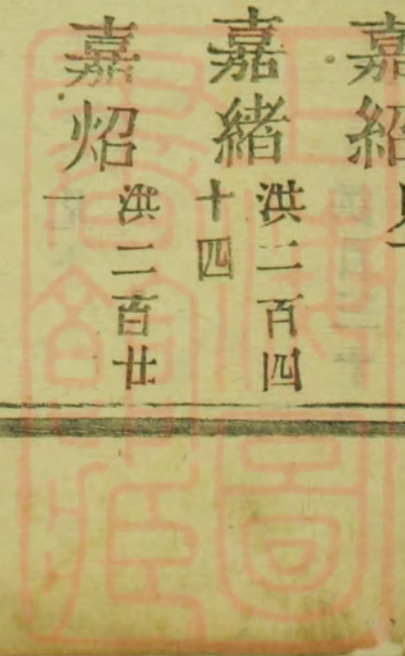 嘉紹
嘉緒 洪二百四十四
嘉炤 洪二百廿一